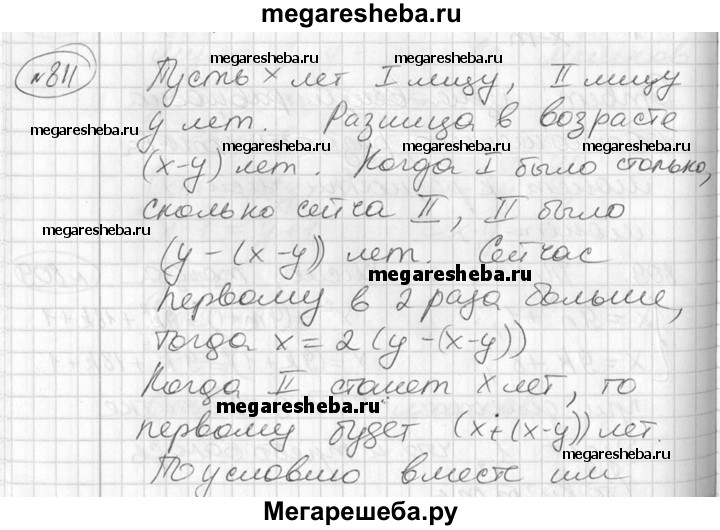 megaresheba.ru
№811
Пусть x лет I лицу, II лицу
megaresheba.ru megaresheba.ru
y лет. Разница в возрасте
megaresheba.ru megaresheba.ru megaresheba.ru
(x-y) лет. Когда I было столько,
сколько сейча II, II было
megaresheba.ru
(y-(x-y)) лет. Сейчас
megaresheba.ru
первому в 2 раза больше,
тогда x = 2(y-(x-y))
Когда II станет x лет, то
megaresheba.ru
первому будет (x+(x-y)) лет.
По условию вместе им
Мегарешеба.ру